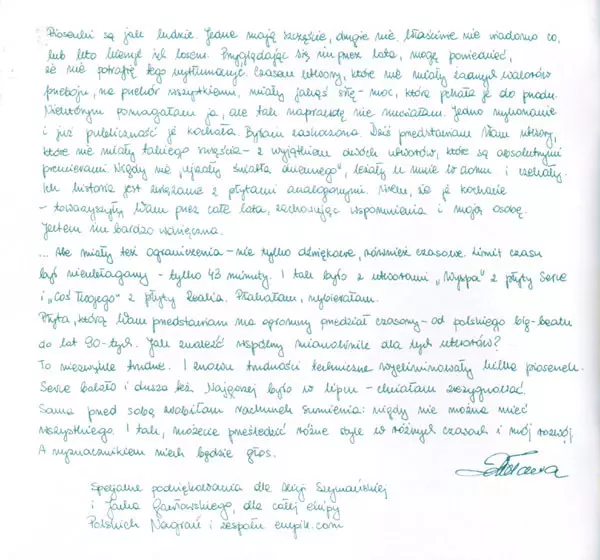 Piosenki są jak ludzie. Jedne mają szczęście, drugie nie. Właściwie nie wiadomo co,
lub kto kieruje ich losem. Przyglądając się im przez lata, mogę powiedzieć,
że nie potrafię tego wytłumaczyć. Czasem utwory, które nie miały żadnych walorów
przeboju, na przekór wszystkiemu, miały jakąś siłę - moc, która pchała je do przodu.
Niektórym pomagałam ja, ale tak naprawdę nie musiałam. Jedno wykonanie
i już publiczność je kochała. Byłam zaskoczona. Dziś przedstawiam Wam utwory,
które nie miały takiego szczęścia - z wyjątkiem dwóch utworów, które są absolutnymi
premierami. Nigdy nie „ujrzały światła dziennego", leżały u mnie w domu i czekały.
Ich historia jest związana z płytami analogowymi. Wiem, że je kochacie
- towarzyszyły Wam przez całe lata, zachowując wspomnienia i moją osobę.
Jestem im bardzo wdzięczna.
... Ale miały też ograniczenia - nie tylko dźwiękowe, również czasowe. Limit czasu
był nieubłagany - tylko 43 minuty. I tak było z utworami „Wyspa" z płyty Serce
i „Coś Twojego" z płyty Realia. Płakałam, wybierałam.
Płyta, którą Wam przedstawiam ma ogromny przedział czasowy - od polskiego big-beatu
do lat 90-tych. Jak znaleźć wspólny mianownik dla tych utworów?
To niezwykle trudne. I znowu trudności techniczne wyeliminowały kilka piosenek.
Serce bolało i dusza też. Najgorzej było w lipcu - chciałam zrezygnować.
Sama przed sobą zrobiłam rachunek sumienia: nigdy nie można mieć
wszystkiego. I tak, możecie prześledzić różne style w różnych czasach i mój rozwój.
A wyznacznikiem niech będzie głos.
Specjalne podziękowania dla Alicji Szymańskiej
i Jarka dla całej ekipy
Polskich Nagrań i zespołu empik.com